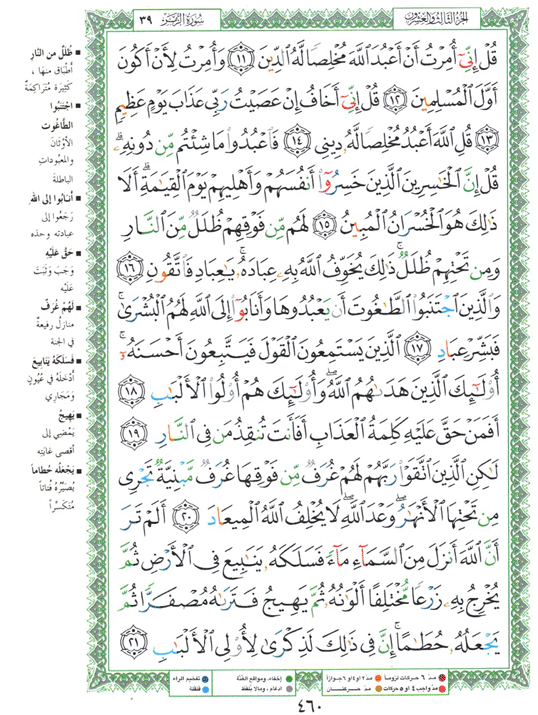 الجزء الثالث والعشرون
سورة الزمر ٣٩
قُلْ إِنِّيٓ أُمِرْتُ أَنْ أَعْبُدَ ٱللَّهَ مُخْلِصًا لَّهُ ٱلدِّينَ ﴿١١﴾ وَأُمِرْتُ لِأَنْ أَكُونَ
أَوَّلَ ٱلْمُسْلِمِينَ ﴿١٢﴾ قُلْ إِنِّيٓ أَخَافُ إِنْ عَصَيْتُ رَبِّي عَذَابَ يَوْمٍ عَظِيمٍ
﴿١٣﴾ قُلِ ٱللَّهَ أَعْبُدُ مُخْلِصًا لَّهُۥ دِينِي ﴿١٤﴾ فَٱعْبُدُوا۟ مَا شِئْتُم مِّن دُونِهِۦۗ
قُلْ إِنَّ ٱلْخَٰسِرِينَ ٱلَّذِينَ خَسِرُوٓا۟ أَنفُسَهُمْ وَأَهْلِيهِمْ يَوْمَ ٱلْقِيَٰمَةِۗ أَلَا
ذَٰلِكَ هُوَ ٱلْخُسْرَانُ ٱلْمُبِينُ ﴿١٥﴾ لَهُم مِّن فَوْقِهِمْ ظُلَلٌ مِّنَ ٱلنَّارِ
وَمِن تَحْتِهِمْ ظُلَلٌۚ ذَٰلِكَ يُخَوِّفُ ٱللَّهُ بِهِۦ عِبَادَهُۥۚ يَٰعِبَادِ فَٱتَّقُونِ ﴿١٦﴾
وَٱلَّذِينَ ٱجْتَنَبُوا۟ ٱلطَّٰغُوتَ أَن يَعْبُدُوهَا وَأَنَابُوٓا۟ إِلَى ٱللَّهِ لَهُمُ ٱلْبُشْرَىٰۚ
فَبَشِّرْ عِبَادِ ﴿١٧﴾ ٱلَّذِينَ يَسْتَمِعُونَ ٱلْقَوْلَ فَيَتَّبِعُونَ أَحْسَنَهُۥٓۚ
أُو۟لَٰٓئِكَ ٱلَّذِينَ هَدَىٰهُمُ ٱللَّهُۖ وَأُو۟لَٰٓئِكَ هُمْ أُو۟لُوا۟ ٱلْأَلْبَٰبِ ﴿١٨﴾
أَفَمَنْ حَقَّ عَلَيْهِ كَلِمَةُ ٱلْعَذَابِ أَفَأَنتَ تُنقِذُ مَن فِي ٱلنَّارِ ﴿١٩﴾
لَٰكِنِ ٱلَّذِينَ ٱتَّقَوْا۟ رَبَّهُمْ لَهُمْ غُرَفٌ مِّن فَوْقِهَا غُرَفٌ مَّبْنِيَّةٌ تَجْرِي
مِن تَحْتِهَا ٱلْأَنْهَٰرُۖ وَعْدَ ٱللَّهِۖ لَا يُخْلِفُ ٱللَّهُ ٱلْمِيعَادَ ﴿٢٠﴾ أَلَمْ تَرَ
أَنَّ ٱللَّهَ أَنزَلَ مِنَ ٱلسَّمَآءِ مَآءً فَسَلَكَهُۥ يَنَٰبِيعَ فِي ٱلْأَرْضِ ثُمَّ
يُخْرِجُ بِهِۦ زَرْعًا مُّخْتَلِفًا أَلْوَٰنُهُۥ ثُمَّ يَهِيجُ فَتَرَىٰهُ مُصْفَرًّا ثُمَّ
يَجْعَلُهُۥ حُطَٰمًاۚ إِنَّ فِي ذَٰلِكَ لَذِكْرَىٰ لِأُو۟لِي ٱلْأَلْبَٰبِ ﴿٢١﴾
▪ ظُلَلٌ من النَّارِ
أطْبَاقٌ منها ،
كثيرة مُتَرَاكِمَةٌ
▪ اجْتَنَبُوا
الطَّاغُوت
الأوْثَانَ
والمعْبُودَاتِ
الباطلة
▪ أنَابُوا إلى اللهِ
رَجَعُوا إلى
عبادته وحده
▪ حَقَّ عَلَيْهِ
وَجَبَ وَثَبَتَ
عَلَيْهِ
▪ لَهُمْ غُرَفٌ
منازل رفيعةٌ
في الجنة
▪ فَسَلَكَهُ يَنَابِيعَ
أدْخَلَهُ في عُيُونٍ
وَمَجَارِي
▪ يَهِيجُ
يَمْضِي إلى
أقصى غايته
▪ يَجْعَلُه حُطاماً
يُصَيِّرُهُ فُتَاتاً
مُتَكَسِّراً
مدّ ٦ حركات لزوماً
مدّ ٢ أو ٤ أو ٦ جوازاً
إخفاء، ومواقع الغُنَّة
تفخيم الراء
مدّ واجب ٤ أو ٥ حركات
مدّ حركتان
ادغام، ومالا يُلفظ
قلقلة
٤٦٠